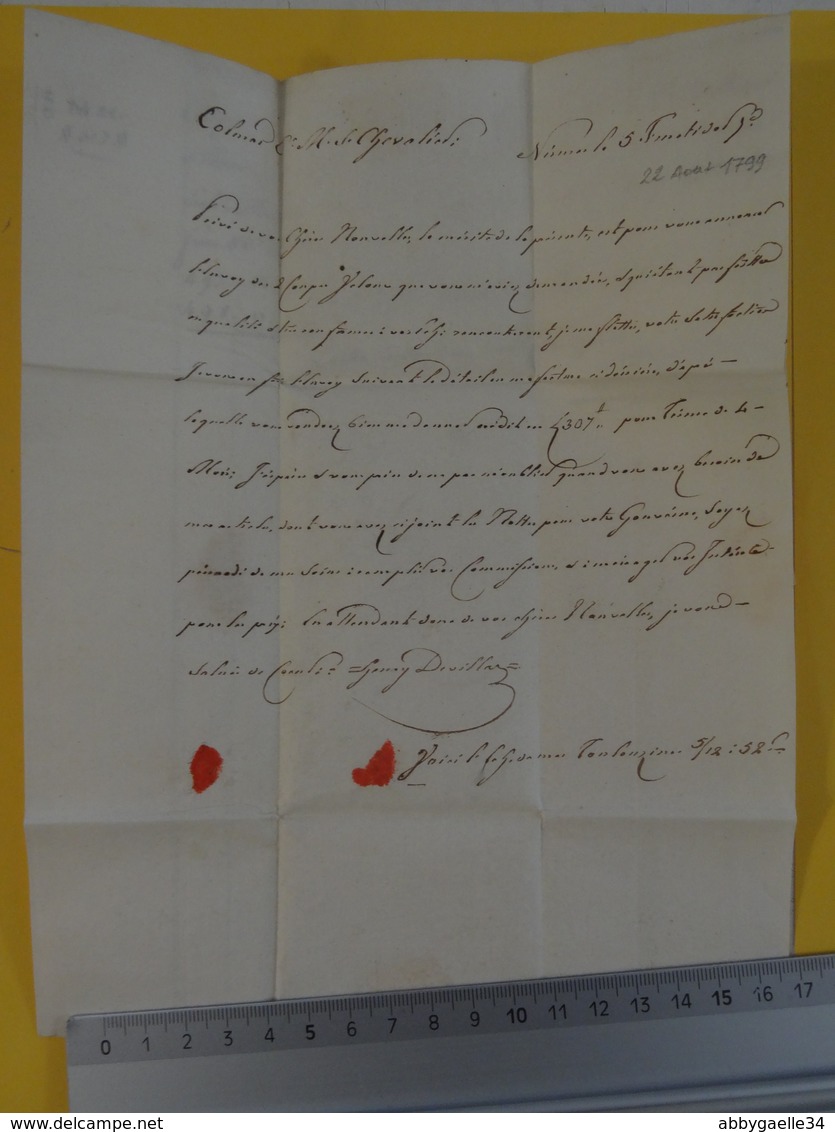 Colmar Cn. M. le Chevalier
Nîmes le 5 Fructidor
22 Aout 1799
Privé de vos Chère Nouvelles, le mérite de la présente, est pour vous annoncer
l'Envoy de 2 Coupes Velours que vous m'aviez demandées, qui étant parfaittes
en qualité rencontreront, je me flatte, votre Satisfaction
Je vous en fais l'Envoy Suivant le détail en ma facture cidérière, d'après
laquelle vous voudrez bien me donner crédit en £307 pour Terme de 4
Mois; J'espère vous prie de ne pas m'oublier quand vous avez besoin de
mes articles, dont vous avez cijoint la Notte, pour votre Gouverne, Soyez
persuadé de mes Soins à remplir vos Commissions, & à ménager vos Intérêts
pour les prix; En attendant donc de vos chères Nouvelles, je vous
Salue de Cordi. = Henry Devillas =
Voici le de mes Toulouzines 5/12 : 52
0 1 2 3 4 5 6 7 8 9 10 11 12 13 14 15 16 17
delcampe.net
abbygaelle34